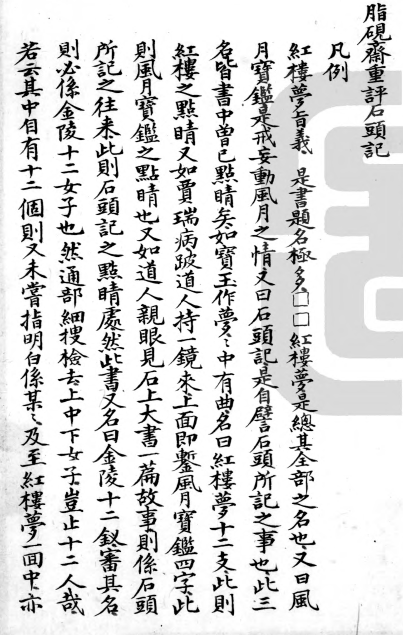 脂硯齋重評石頭記
凡例
紅樓夢旨義　是書題名極多□□紅樓夢是總其全部之名也又曰風
月寶鑑是戒妄動風月之情又曰石頭記是自譬石頭所記之事也此三
名皆書中曾已點睛矣如寶玉作夢〻中有曲名曰紅樓夢十二支此則
紅樓之點睛又如賈瑞病跛道人持一鏡來上面即鏨風月寶鑑四字此
則風月寶鑑之點睛也又如道人親眼見石上大書一篇故事則係石頭
所記之往來此則石頭記之點睛處然此書又名曰金陵十二釵審其名
則必係金陵十二女子也然通部細搜檢去上中下女子豈止十二人哉
若云其中自有十二個則又未嘗指明白係某〻及至紅樓夢一回中亦